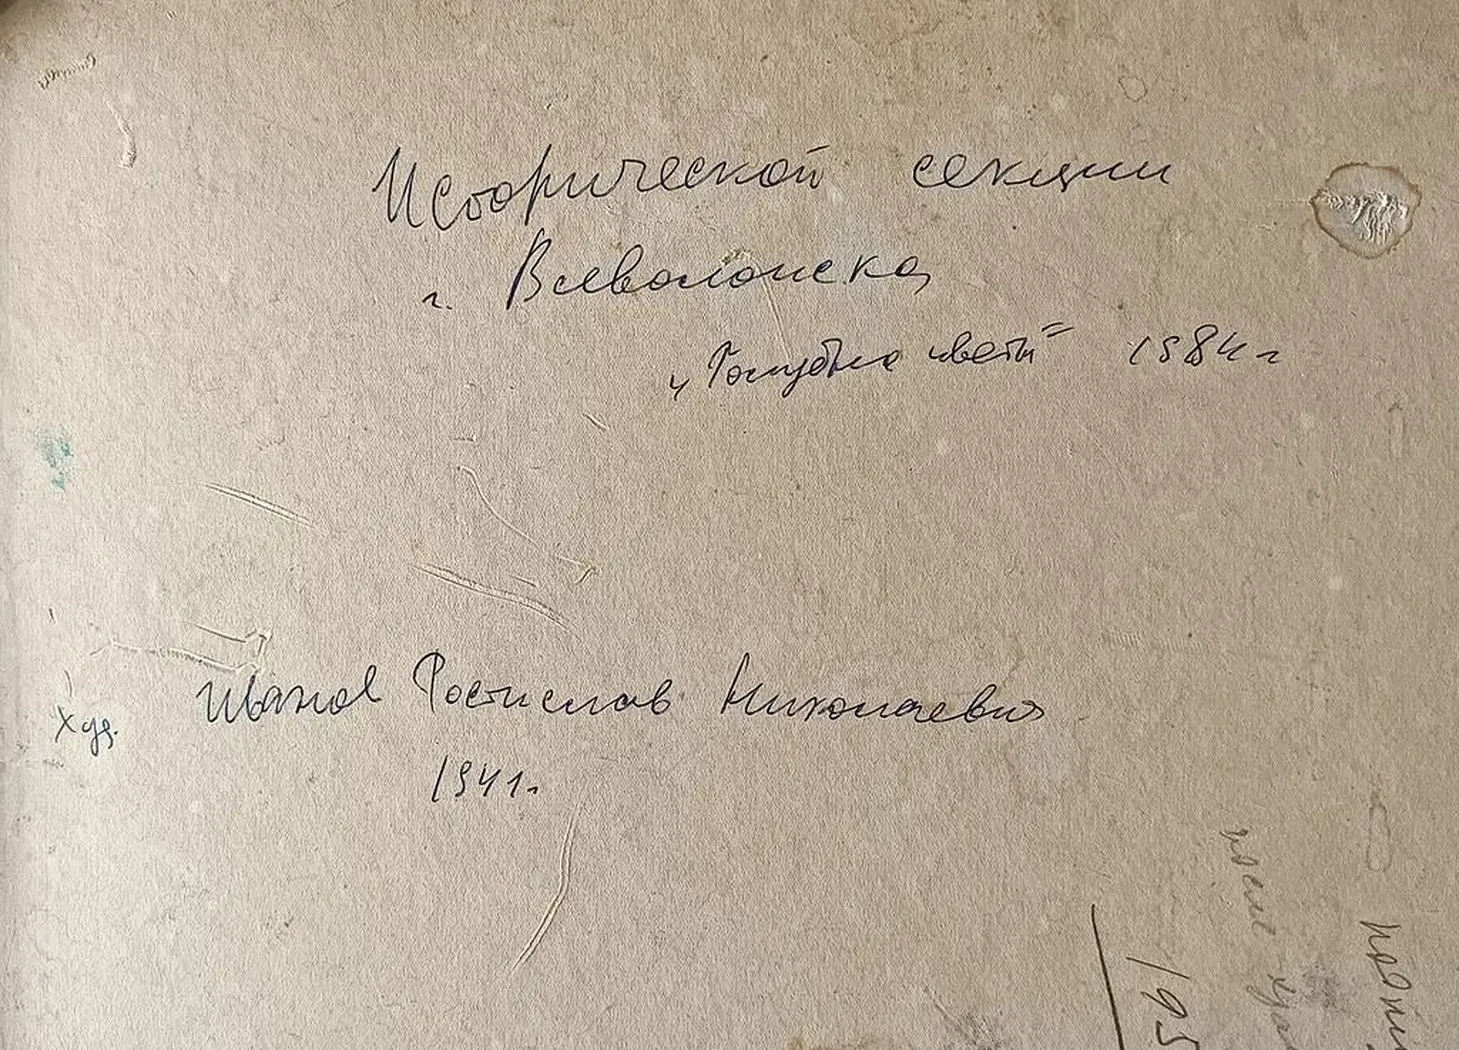 Исторической секции
г. Всеволожска
„Голубые цветы" 1984 г
Худ. Иванов Ростислав Николаевич
1941г.
195